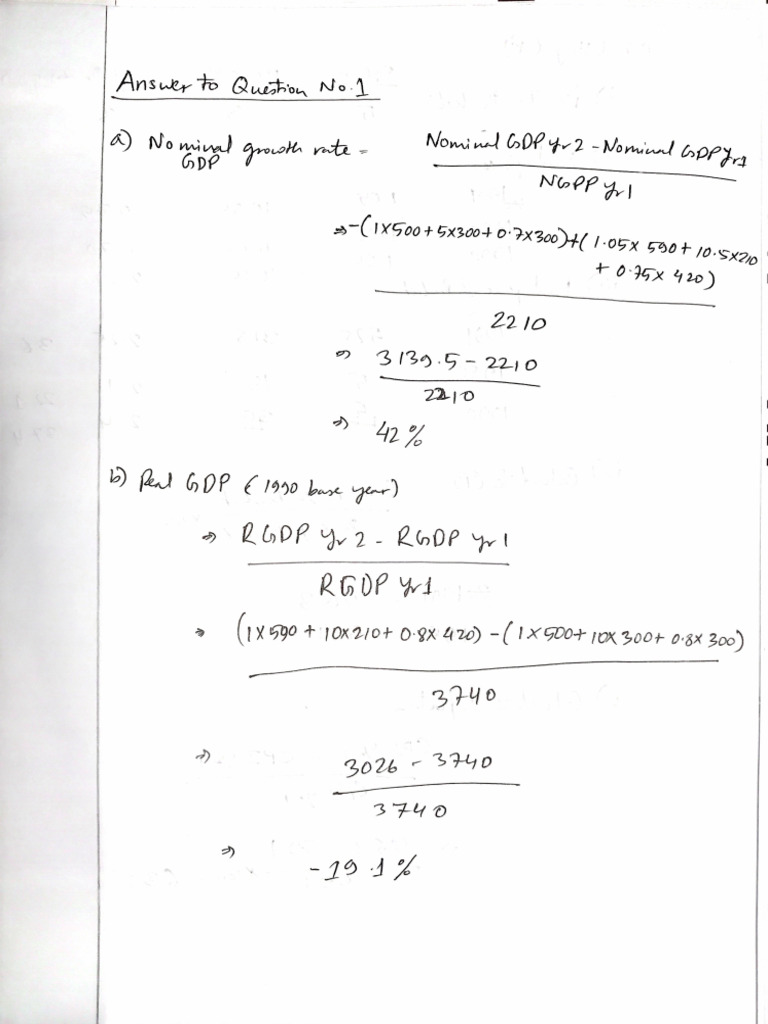 Answer to Question No.1
a) Nominal growth rate = Nominal GDP yr 2 - Nominal GDP yr1
GDP
NGPP yr1
⇒ -(1x500+5x300+0.7x300)+(1.05x 590+10.5x210
+ 0.75x 420)
2210
⇒ 3139.5 - 2210
2210
⇒ 42%
b) Real GDP (1990 base year)
⇒ RGDP yr 2 - RGDP yr1
RGDP yr1
⇒ (1x590 + 10x210 + 0.8x 420) - (1x500+ 10x300+ 0.8x 300)
3740
⇒ 3026 - 3740
3740
⇒ -19.1%